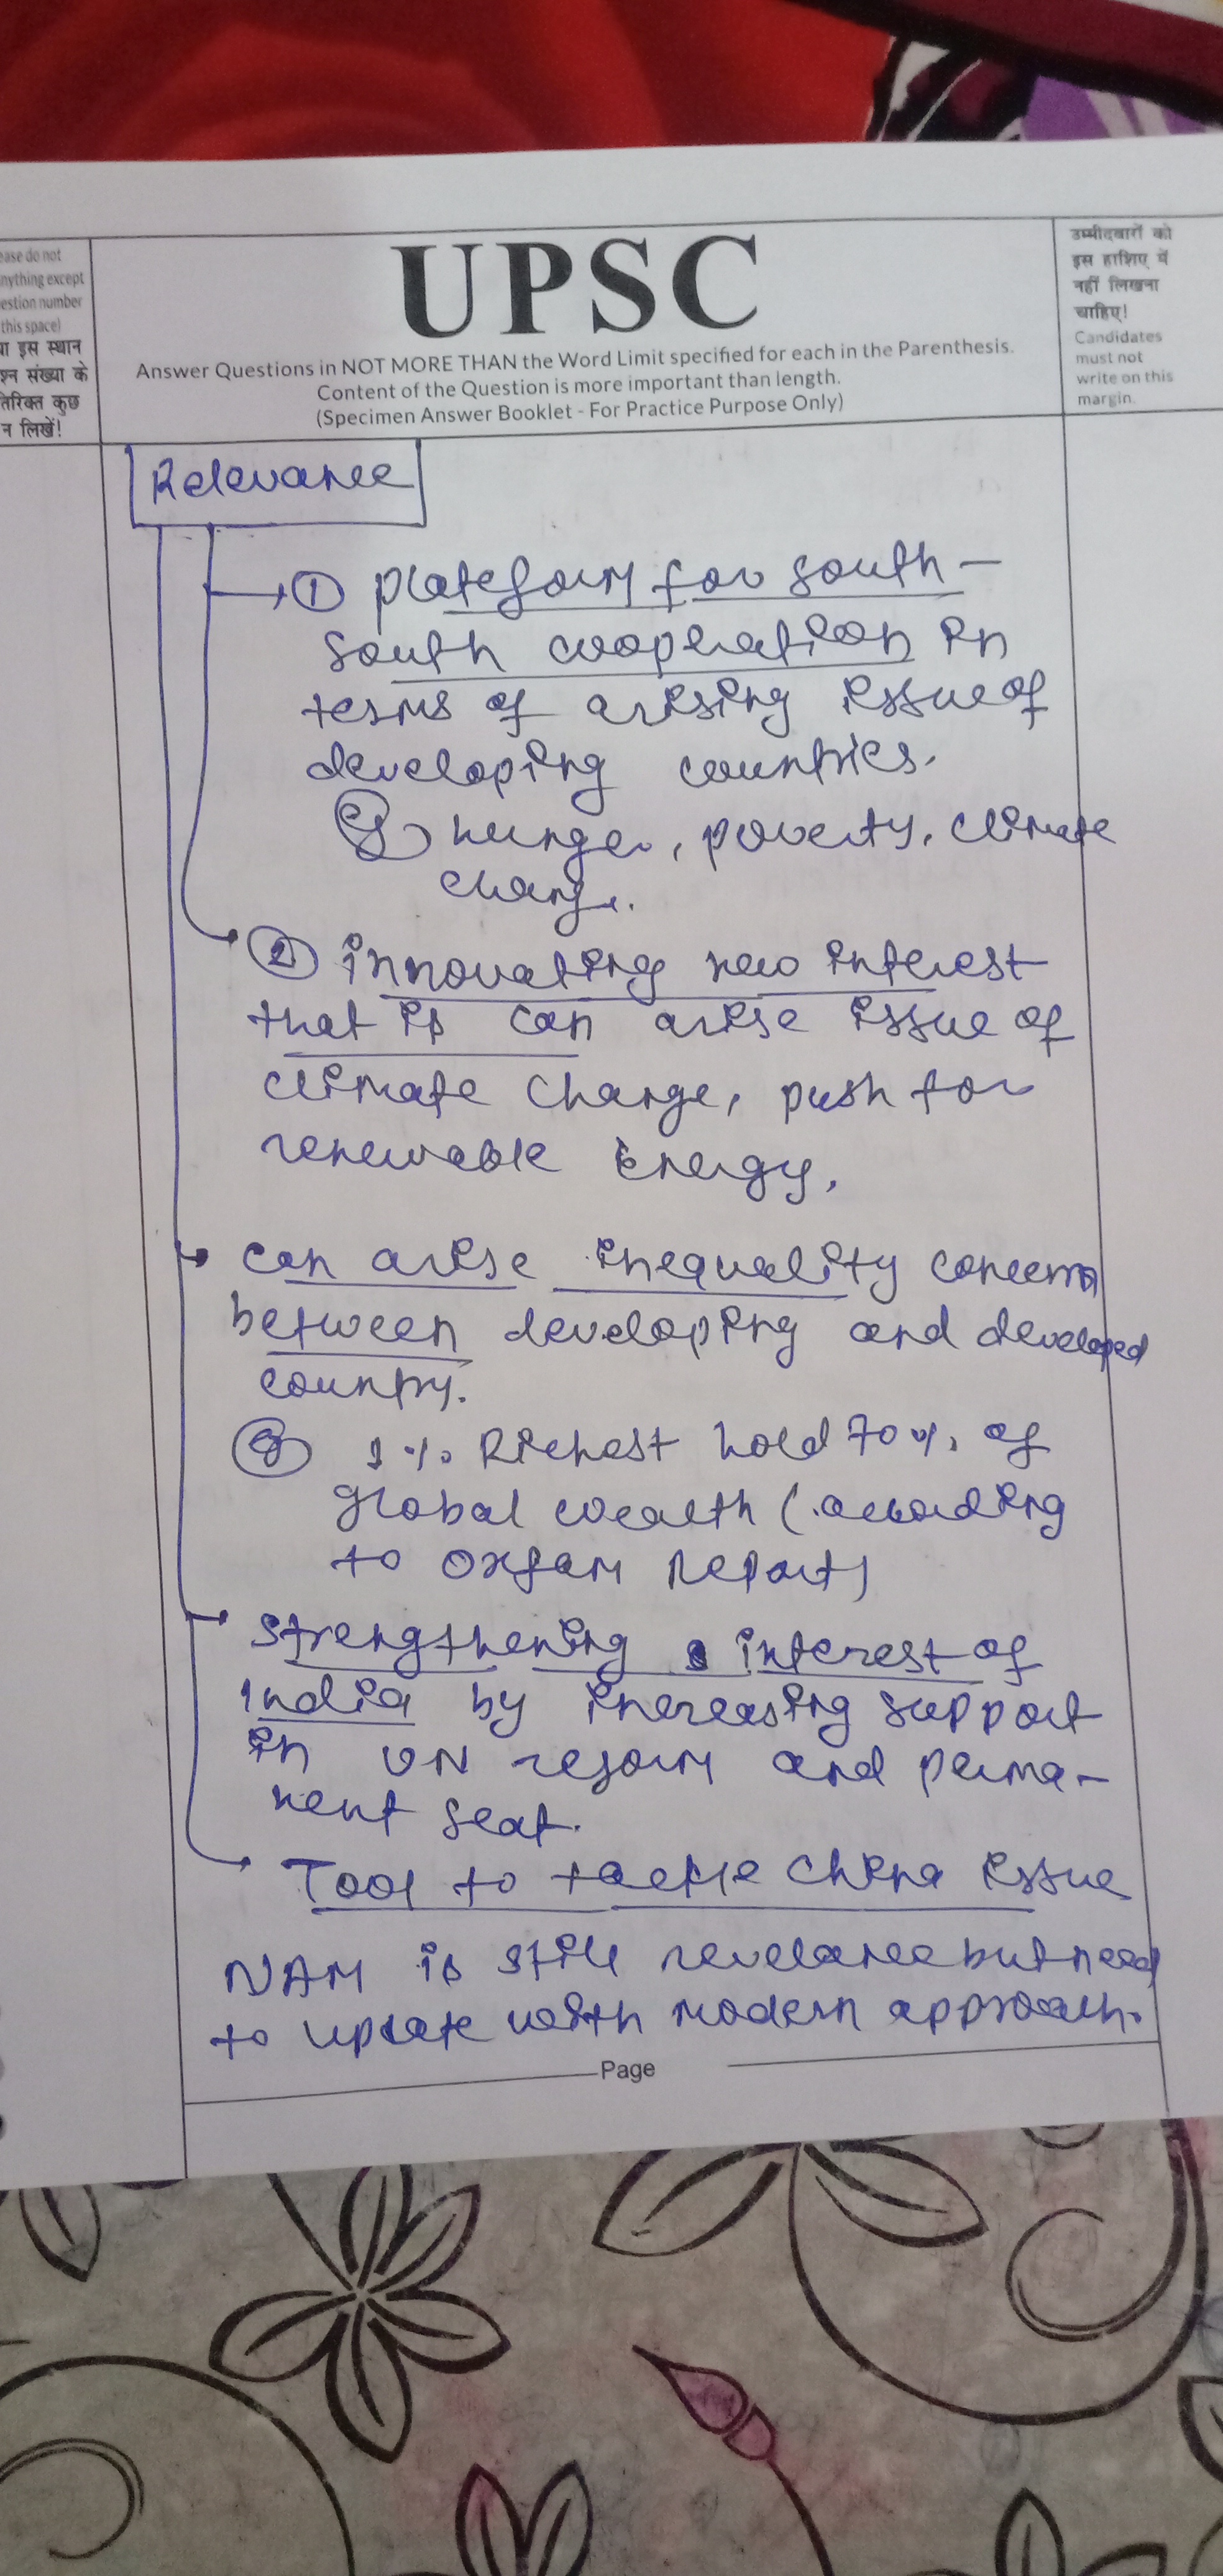 ease do not
nything except
estion number
this space)
ा इस स्थान
श्न संख्या के
तिरिक्त कुछ
न लिखें!
UPSC
Answer Questions in NOT MORE THAN the Word Limit specified for each in the Parenthesis.
Content of the Question is more important than length.
(Specimen Answer Booklet - For Practice Purpose Only)
उम्मीदवारों को
इस हाशिए में
नहीं लिखना
चाहिए!
Candidates
must not
write on this
margin.
Relevance
① plateform for south-
south cooperation in
terms of arising issue of
developing countries.
eg hunger, poverty, climate
change.
② innovating new interest
that is can arise issue of
climate change, push for
renewable Energy,
can arise inequality concern
between developing and developed
country.
eg 1% Richest hold 70% of
global wealth (according
to oxfam report)
strengthening interest of
India by increasing support
in UN reform and perma-
nent seat.
Tool to tackle china issue
NAM is still revelance but need
to update with modern approach.
Page